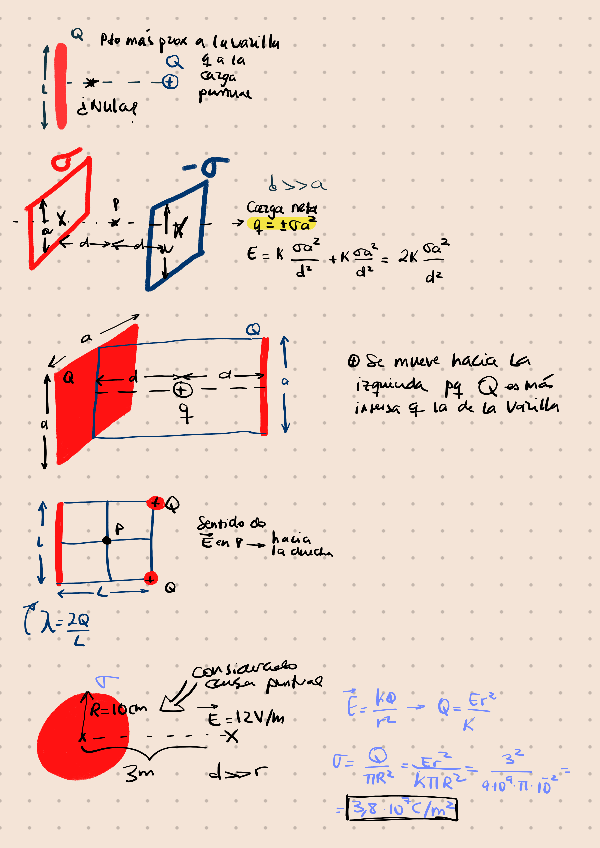 Q
Pto más prox a la varilla
Q q a la
carga
puntual
L
¿Nula?
σ
-σ
a
d
P
d
d >> a
Carga neta
q = ±σa²
E = K σa²/d² + K σa²/d² = 2K σa²/d²
a
Q
Q
a
d
d
a
q
⊕ Se mueve hacia la
izquierda pq Q es más
intensa q la de la varilla
L
P
Q
Q
L
Sentido de
E⃗ en P → hacia
la derecha
λ = 2Q/L
σ
considerado
carga puntual
R = 10cm
E⃗ = 12V/m
3m
d >> r
E⃗ = KQ/r² → Q = Er²/K
σ = Q/πR² = Er²/KπR² = 3²/9·10⁹·π·10⁻² =
= 3,8 · 10⁻⁷ C/m²